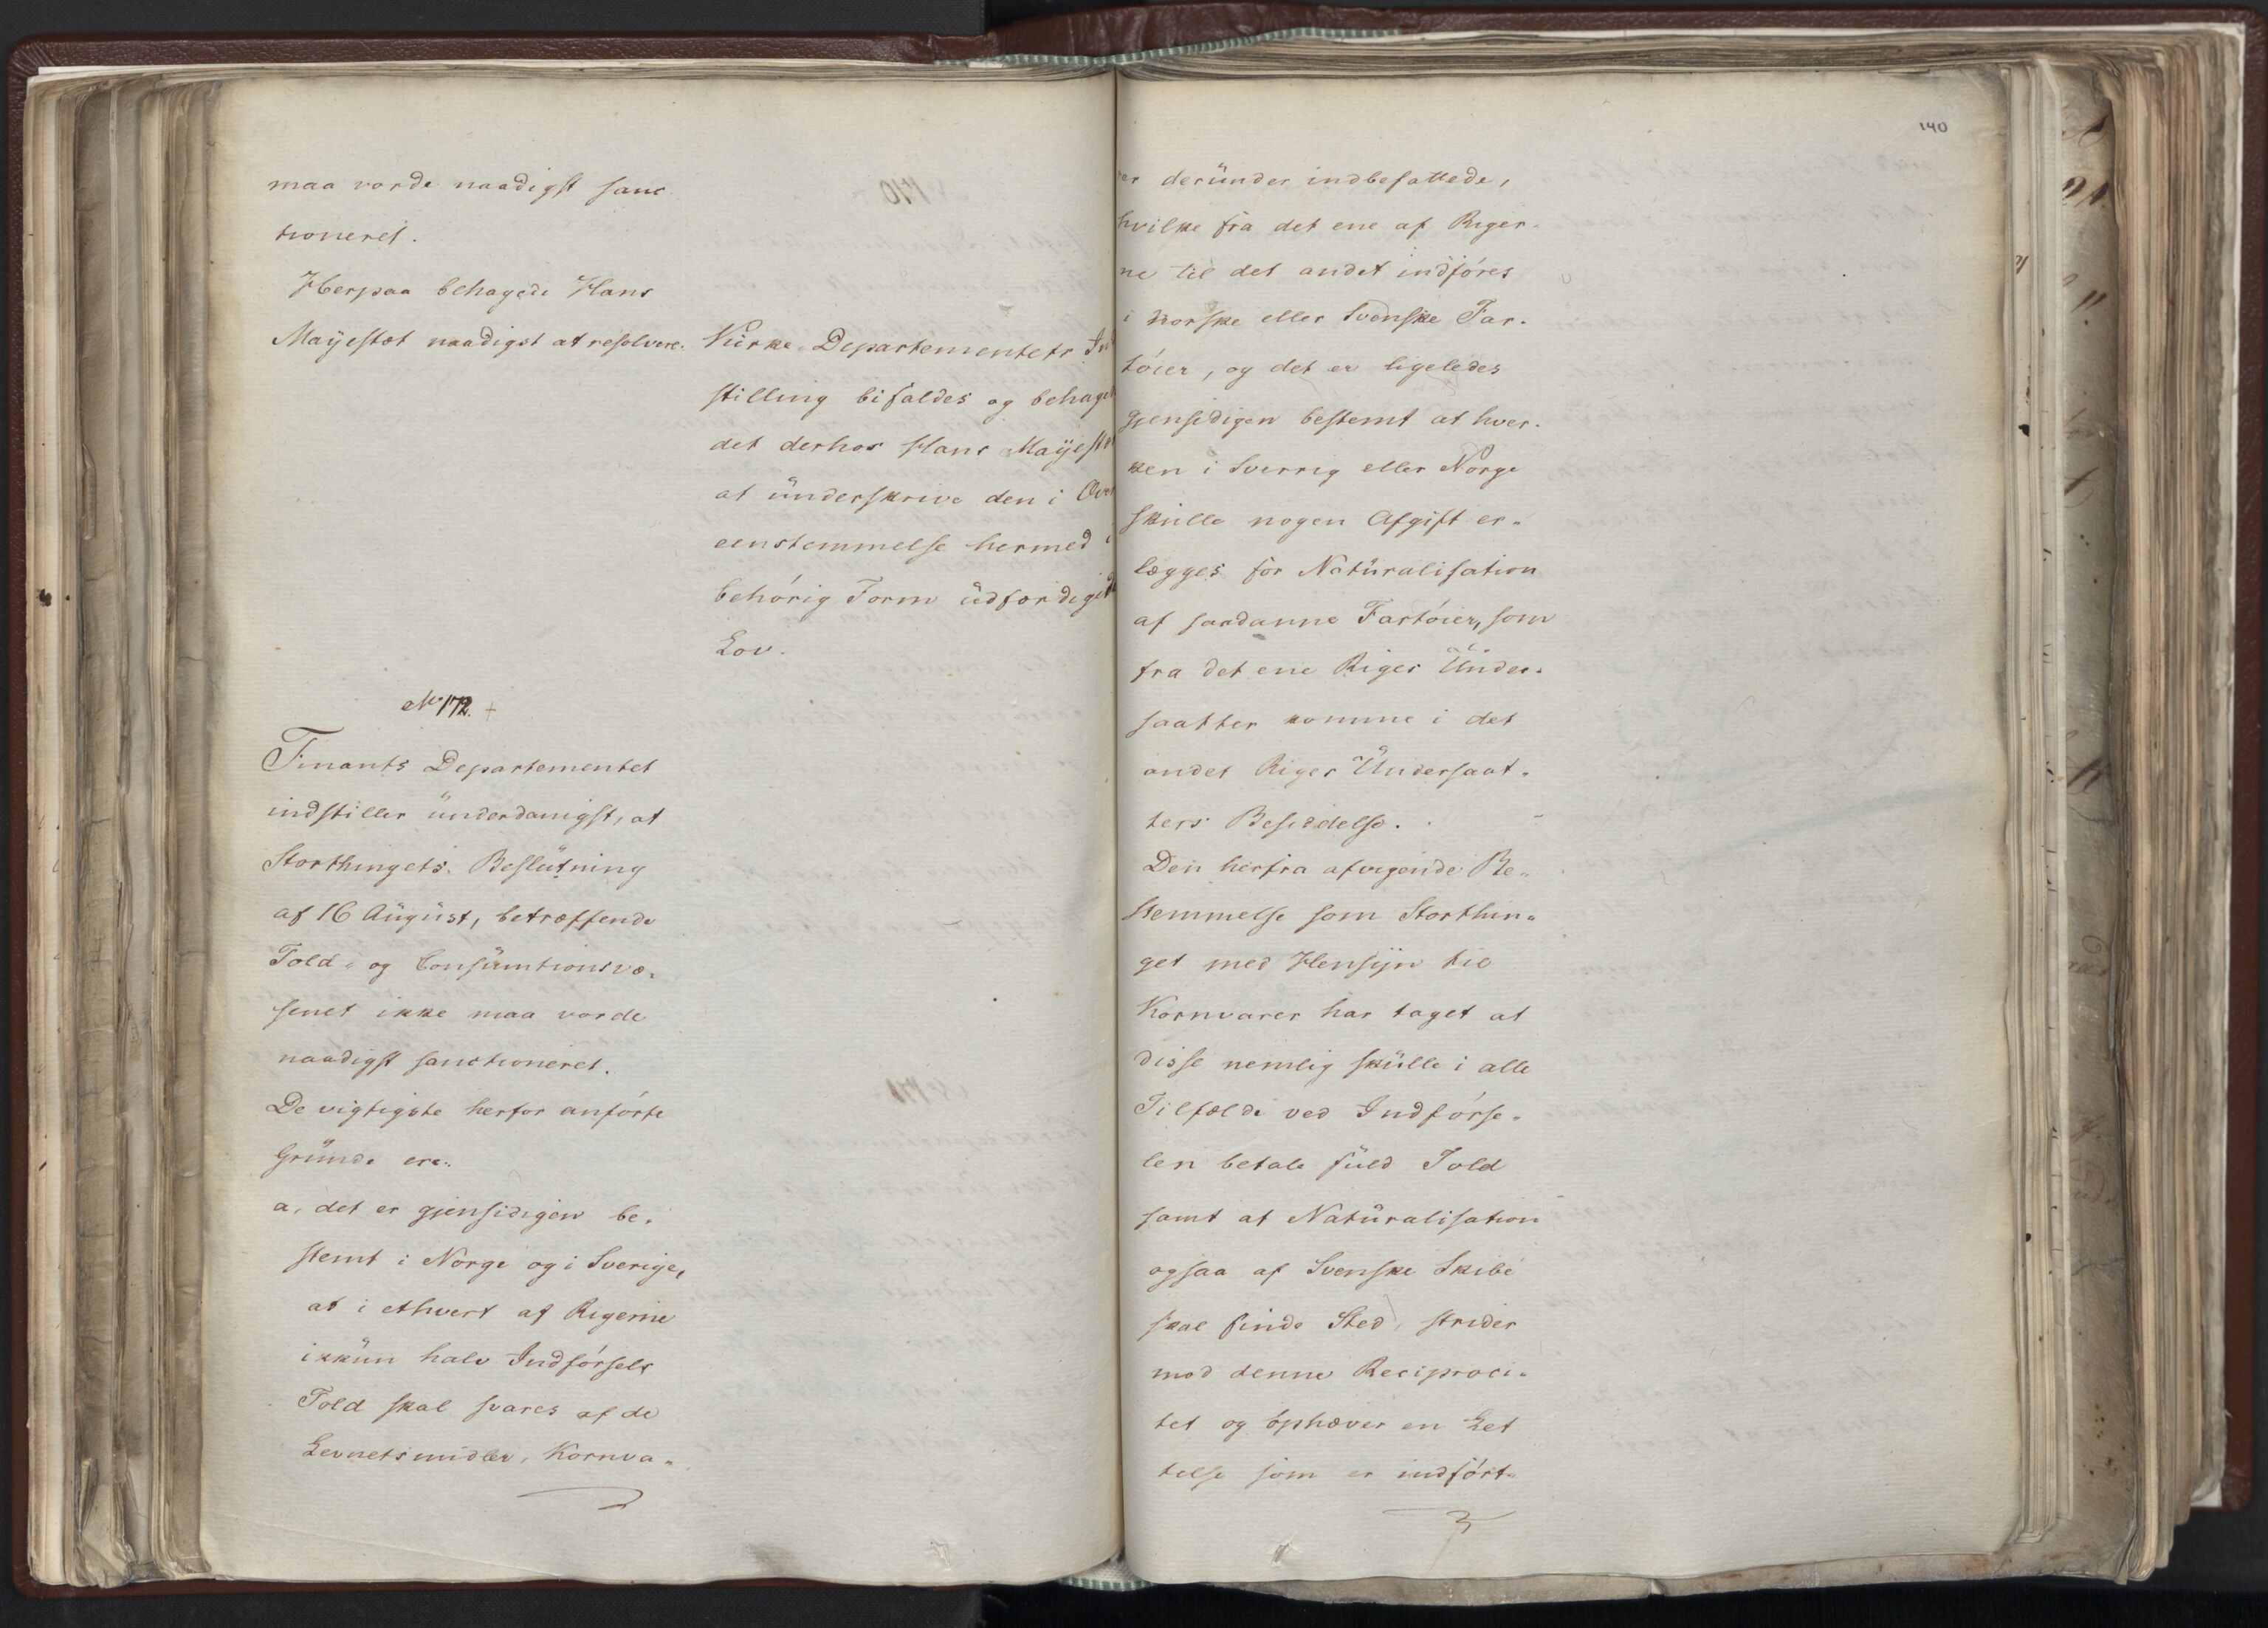 maa vorde naadigst sanc
tioneret.
Herpaa behagede Hans
Mayestæt naadigst at resolvere.
Kirke-Departementets Ind
stilling bifaldes og behaged
det derhos Hans Mayestæt
at ünderskrive den i Over
eenstemmelse hermed i
behórig Form üdfærdigede
Lov.
No 172. +
Finants Departementet
indstiller ünderdanigst, at
Storthingets Beslütning
af 16 Aügüst, betræffende
Told- og Consümtionsvæ-
senet ikke maa vorde
naadigst sanctioneret.
De vigtigste herfor anfórte
Gründe ere:
a, det er gjensidigen be-
stemt i Norge og i Sverige,
at i ethvert af Rigerne
ikkün halv Indfórsels
Told skal svares af de
Levnetsmidler, Kornva-
140
rer deründer indbefattede,
hvilke fra det ene af Riger-
ne til det andet indfóres
i norske eller Svenske Far-
tóier, og det er ligeledes
gjensidigen bestemt at hver-
ken i Sverrig eller Norge
skülle nogen Afgift er-
lægges for Natüralisation
af saadanne Fartóier, som
fra det ene Riges Ünder-
saatter komme i det
andet Riges Ündersaat-
ters Besiddelse.
Den herfra afvigende Be-
stemmelse som Storthin-
get med Hensyn til
Kornvarer har taget at
disse nemlig skülle i alle
Tilfælde ved Indfórse-
len betale füld Told
samt at Natüralisation
ogsaa af Svenske Skibe
skal finde Sted, strider
mod denne Reciproci-
tet og ophæver en Let
telse som er indfórt-